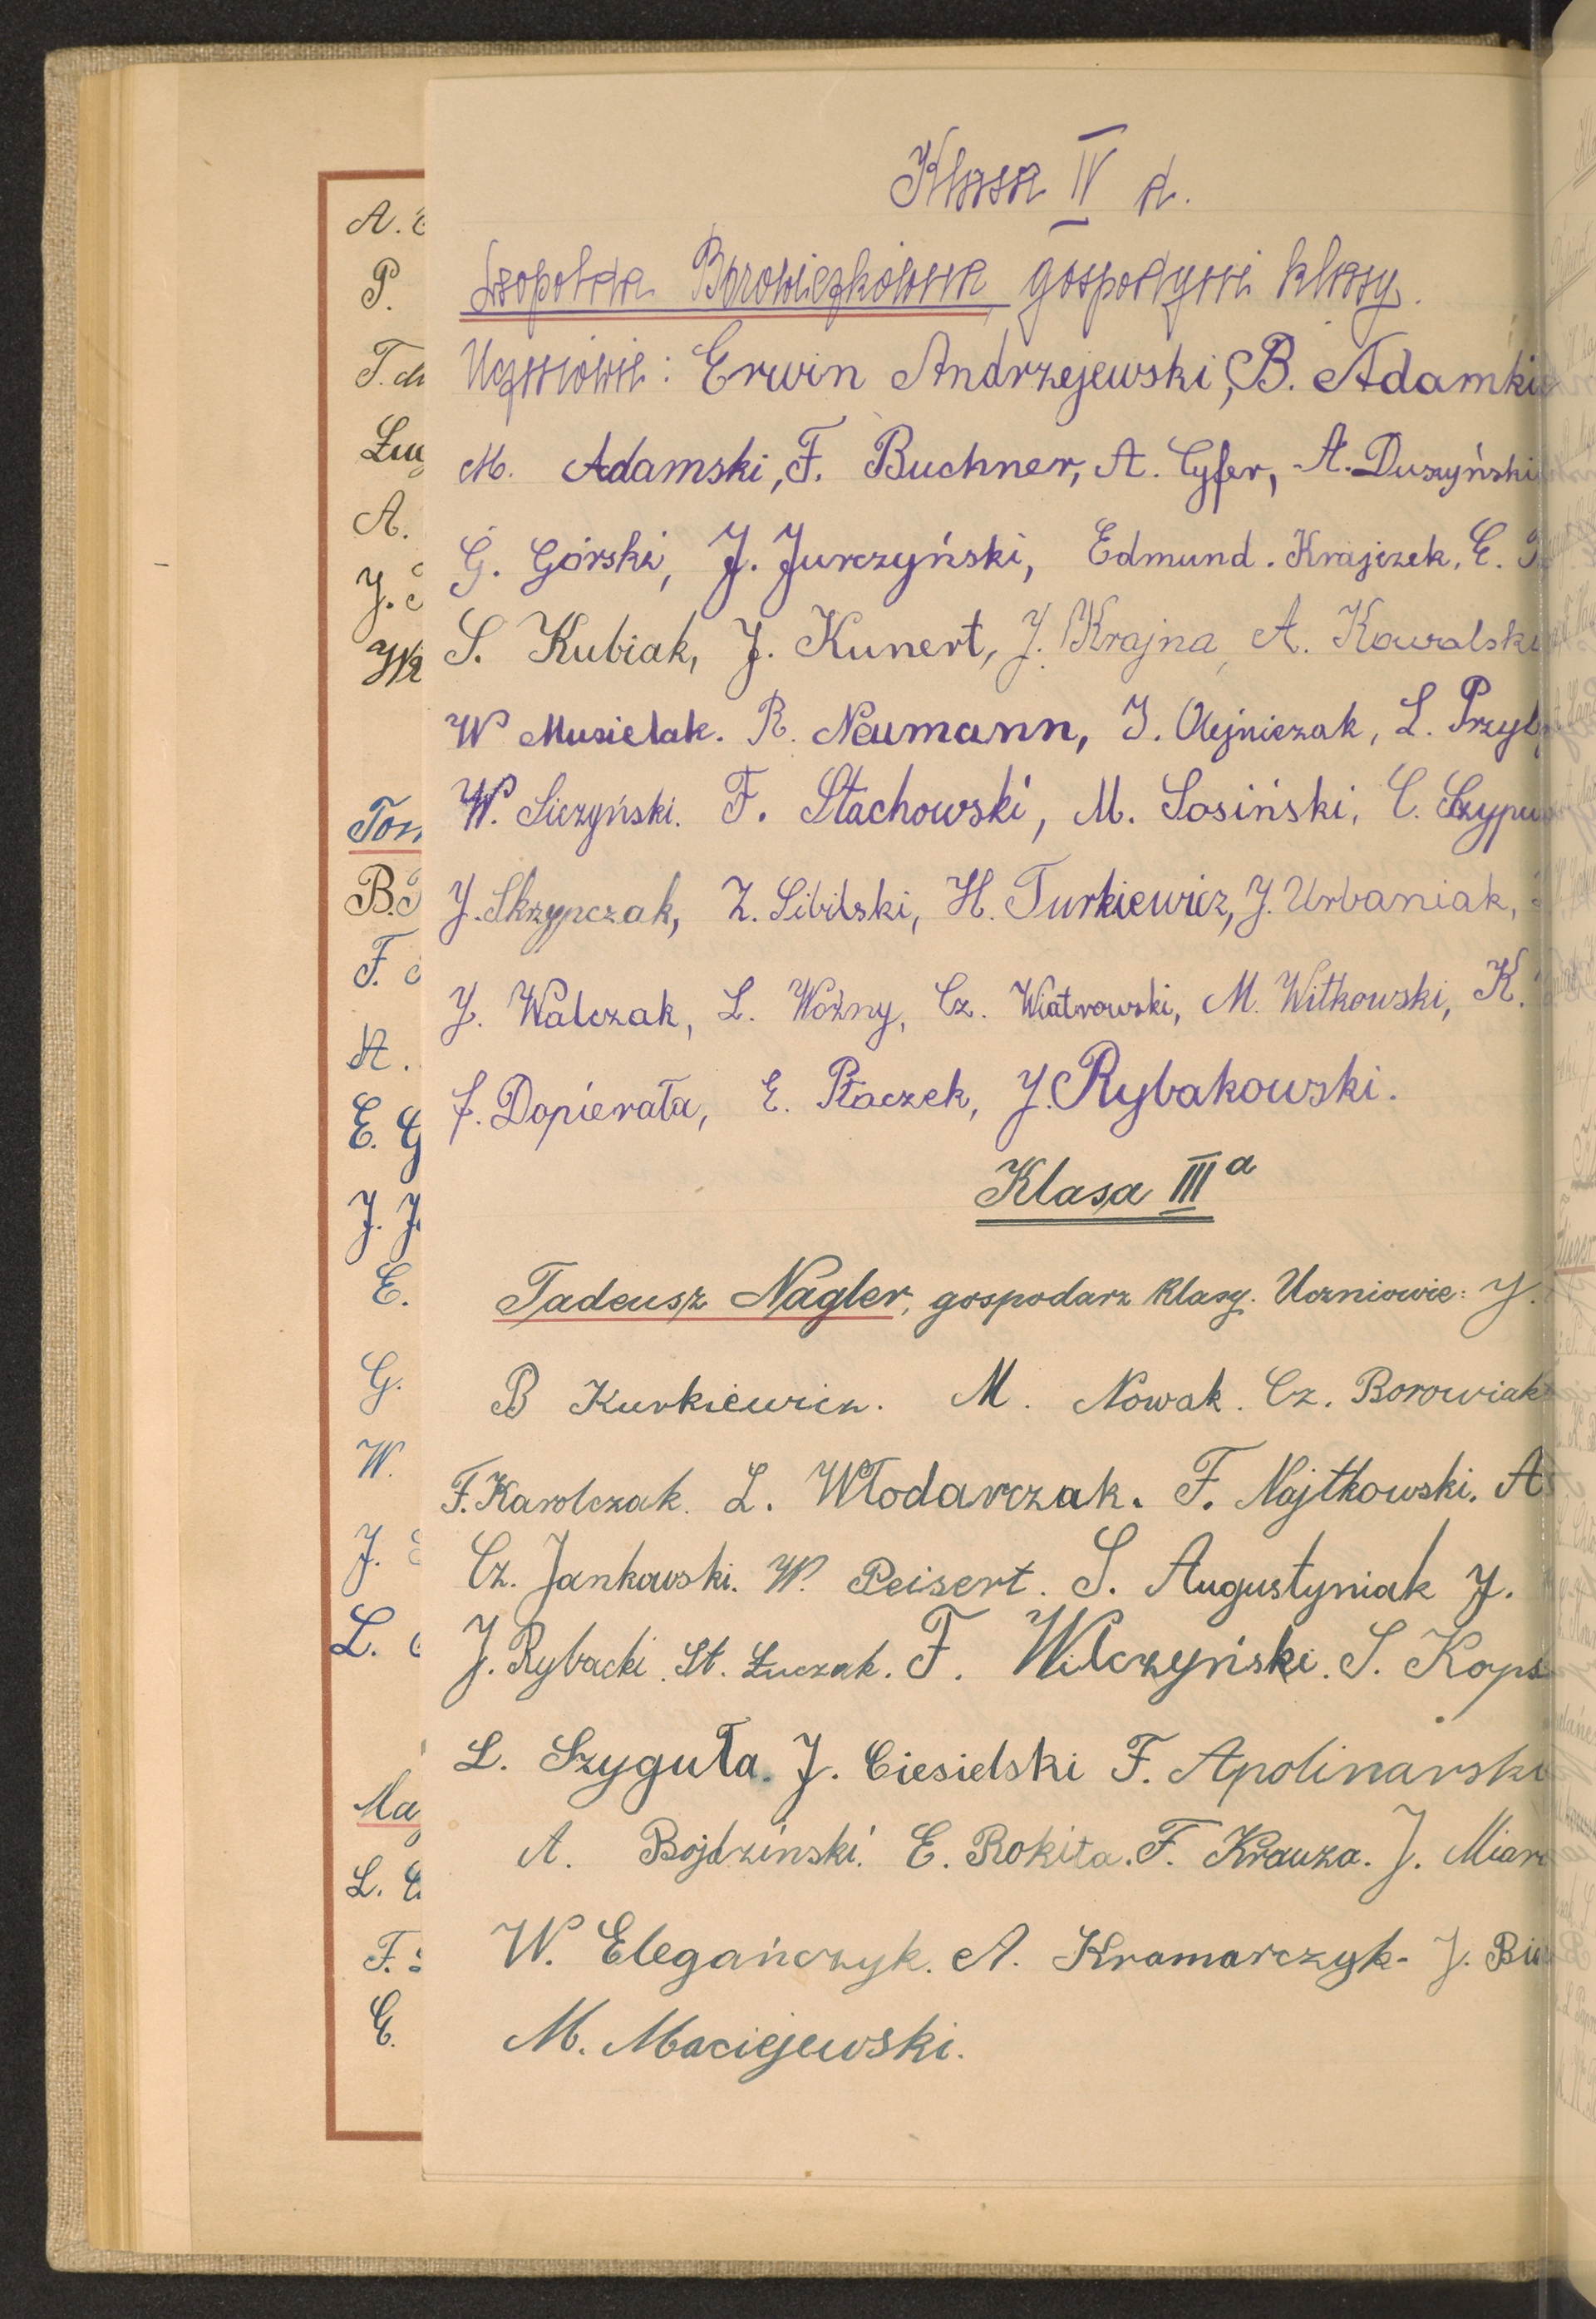 Klasa IV d.
Leopolda Borowiczkówna gospodyni klasy.
Uczniowie: Erwin Andrzejewski, B. Adamki
M. Adamski, F. Buchner, A. Cyfer, A. Duszyński
G. Górski, J. Jurczyński, Edmund. Krajczek, E.
S. Kubiak, J. Kunert, J. Krajna, A. Kowalski
W Musielak. R. Neumann, J. Olejniczak, L. Przyby
W. Siczyński. F. Stachowski, M. Sosiński, C. Szypu
J. Skrzypczak, Z. Sibilski, H. Turkiewicz, J. Urbaniak,
J. Walczak, L. Woźny, Cz. Wiatrowski, M. Witkowski, K.
f. Dopierała, E. Ptaczek, J. Rybakowski.
Klasa III a
Tadeusz Nagler, gospodarz klasy. Uczniowie: J.
B Kurkiewicz. M. Nowak. Cz. Borowiak
F. Karolczak. L. Włodarczak. F. Najtkowski. A
Cz. Jankowski. W. Peisert. S. Augustyniak J.
J. Rybacki. St. Łuczak. F. Wilczyński. S. Kops
L. Szyguła. J. Ciesielski F. Apolinarski
A. Bojdziński. E. Rokita. F. Krauza. J. Miar
W. Elegańczyk. A. Kramarczyk. J. Bie
M. Maciejewski.
A.
P.
T.
Łu
A.
J.
Tom
B.
F.
A.
E. G
J. J
E.
G.
W.
J.
L.
Ma
L.
F.
G.